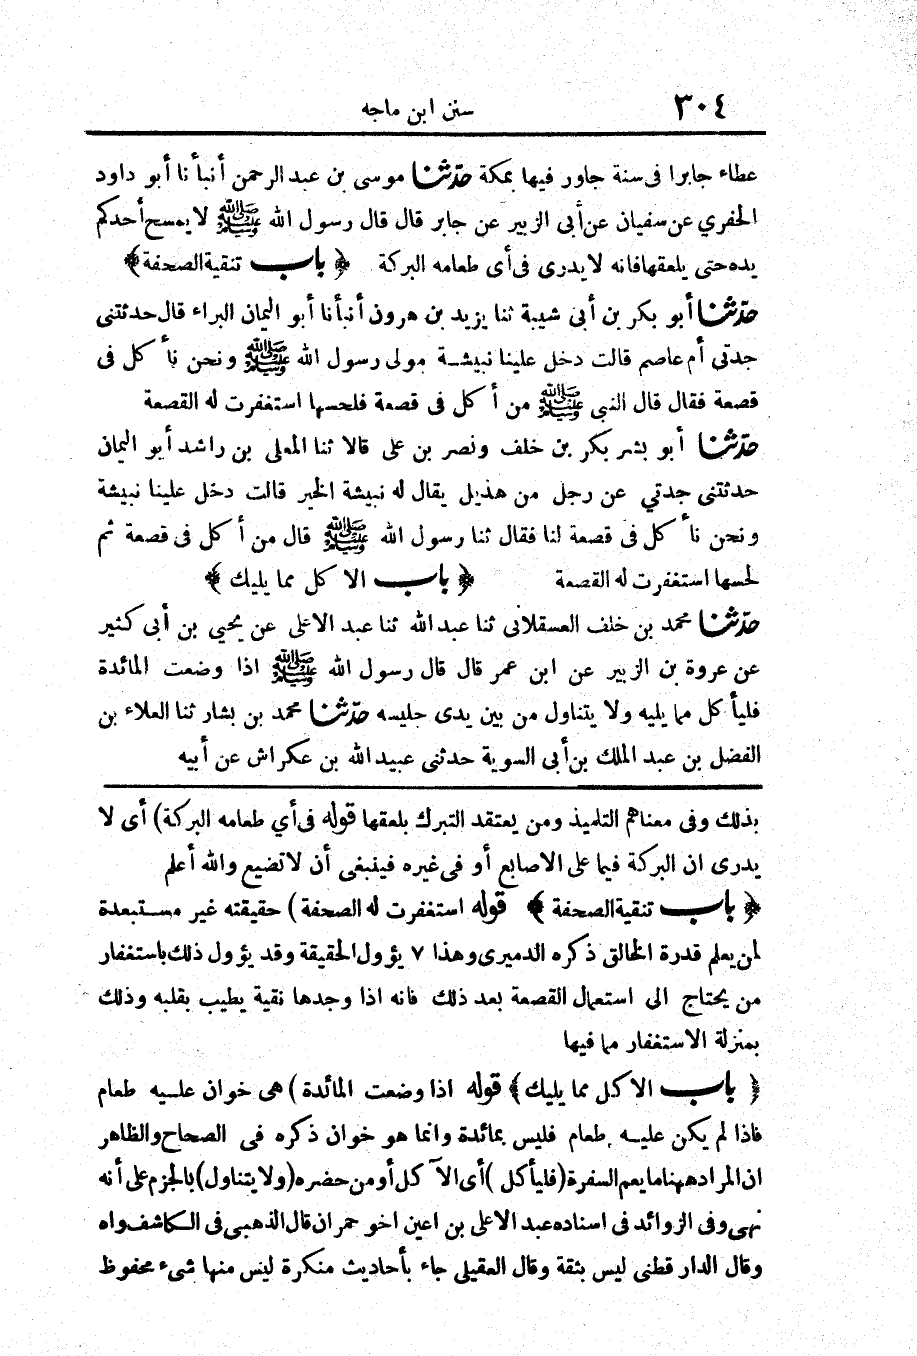 ٣٠٤ سنن ابن ماجه
عطاء جابرا فى سنة جاور فيها بمكة حدّثنا موسى بن عبد الرحمن أنبأنا أبو داود
الحفري عن سفيان عن أبى الزبير عن جابر قال قال رسول الله ﷺ لا يمسح أحدكم
يده حتى يلعقها فانه لا يدرى فى أى طعامه البركة ﴿ باب تنقية الصحفة ﴾
حدّثنا أبو بكر بن أبى شيبة ثنا يزيد بن هرون أنبأنا أبو اليمان البراء قال حدثتنى
جدتى أم عاصم قالت دخل علينا نبيشة مولى رسول الله ﷺ ونحن نأكل فى
قصعة فقال قال النبى ﷺ من أكل فى قصعة فلحسها استغفرت له القصعة
حدّثنا أبو بشر بكر بن خلف ونصر بن على قالا ثنا المعلى بن راشد أبو اليمان
حدثتنى جدتي عن رجل من هذيل يقال له نبيشة الخير قالت دخل علينا نبيشة
ونحن نأكل فى قصعة لنا فقال ثنا رسول الله ﷺ قال من أكل فى قصعة ثم
لحسها استغفرت له القصعة ﴿ باب الاكل مما يليك ﴾
حدّثنا محمد بن خلف العسقلانى ثنا عبد الله ثنا عبد الاعلى عن يحيى بن أبى كثير
عن عروة بن الزبير عن ابن عمر قال قال رسول الله ﷺ اذا وضعت المائدة
فليأكل مما يليه ولا يتناول من بين يدى جليسه حدّثنا محمد بن بشار ثنا العلاء بن
الفضل بن عبد الملك بن أبى السوية حدثنى عبيد الله بن عكراش عن أبيه
بذلك وفى معناهم التلميذ ومن يعتقد التبرك بلعقها قوله فى أي طعامه البركة) أى لا
يدرى ان البركة فيما على الاصابع أو فى غيره فينبغى أن لا تضيع والله أعلم
﴿ باب تنقية الصحفة ﴾ قوله استغفرت له الصحفة ) حقيقته غير مستبعدة
لمن يعلم قدرة الخالق ذكره الدميرى وهذا ٧ يؤول الحقيقة وقد يؤول ذلك باستغفار
من يحتاج الى استعمال القصعة بعد ذلك فانه اذا وجدها نقية يطيب بقلبه وذلك
بمنزلة الاستغفار مما فيها
﴿ باب الاكل مما يليك ﴾ قوله اذا وضعت المائدة ) هى خوان عليه طعام
فاذا لم يكن عليه طعام فليس بمائدة وانما هو خوان ذكره فى الصحاح والظاهر
ان المراد ههنا ما يعم السفرة (فليأكل ) أى الآكل أو من حضره (ولا يتناول) بالجزم على أنه
نهى وفى الزوائد فى اسناده عبد الاعلى بن اعين اخو حمران قال الذهبى فى الكاشف واه
وقال الدار قطنى ليس بثقة وقال العقيلى جاء بأحاديث منكرة ليس منها شىء محفوظ